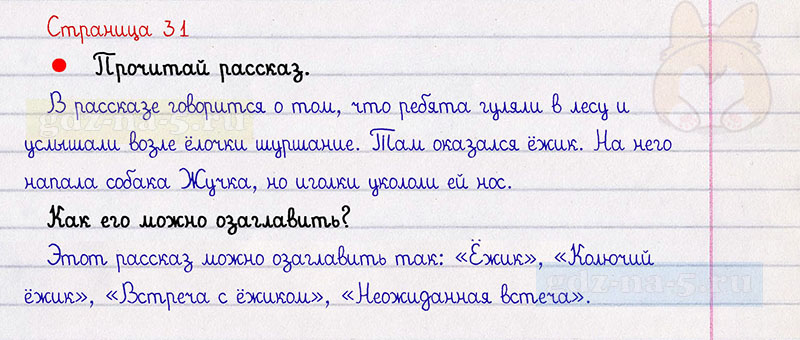 Страница 31
● Прочитай рассказ.
В рассказе говорится о том, что ребята гуляли в лесу и
услышали возле ёлочки шуршание. Там оказался ёжик. На него
напала собака Жучка, но иголки укололи ей нос.
Как его можно озаглавить?
Этот рассказ можно озаглавить так: «Ёжик», «Колючий
ёжик», «Встреча с ёжиком», «Неожиданная встеча».
gdz-na-5.ru
gdz-na-5.ru